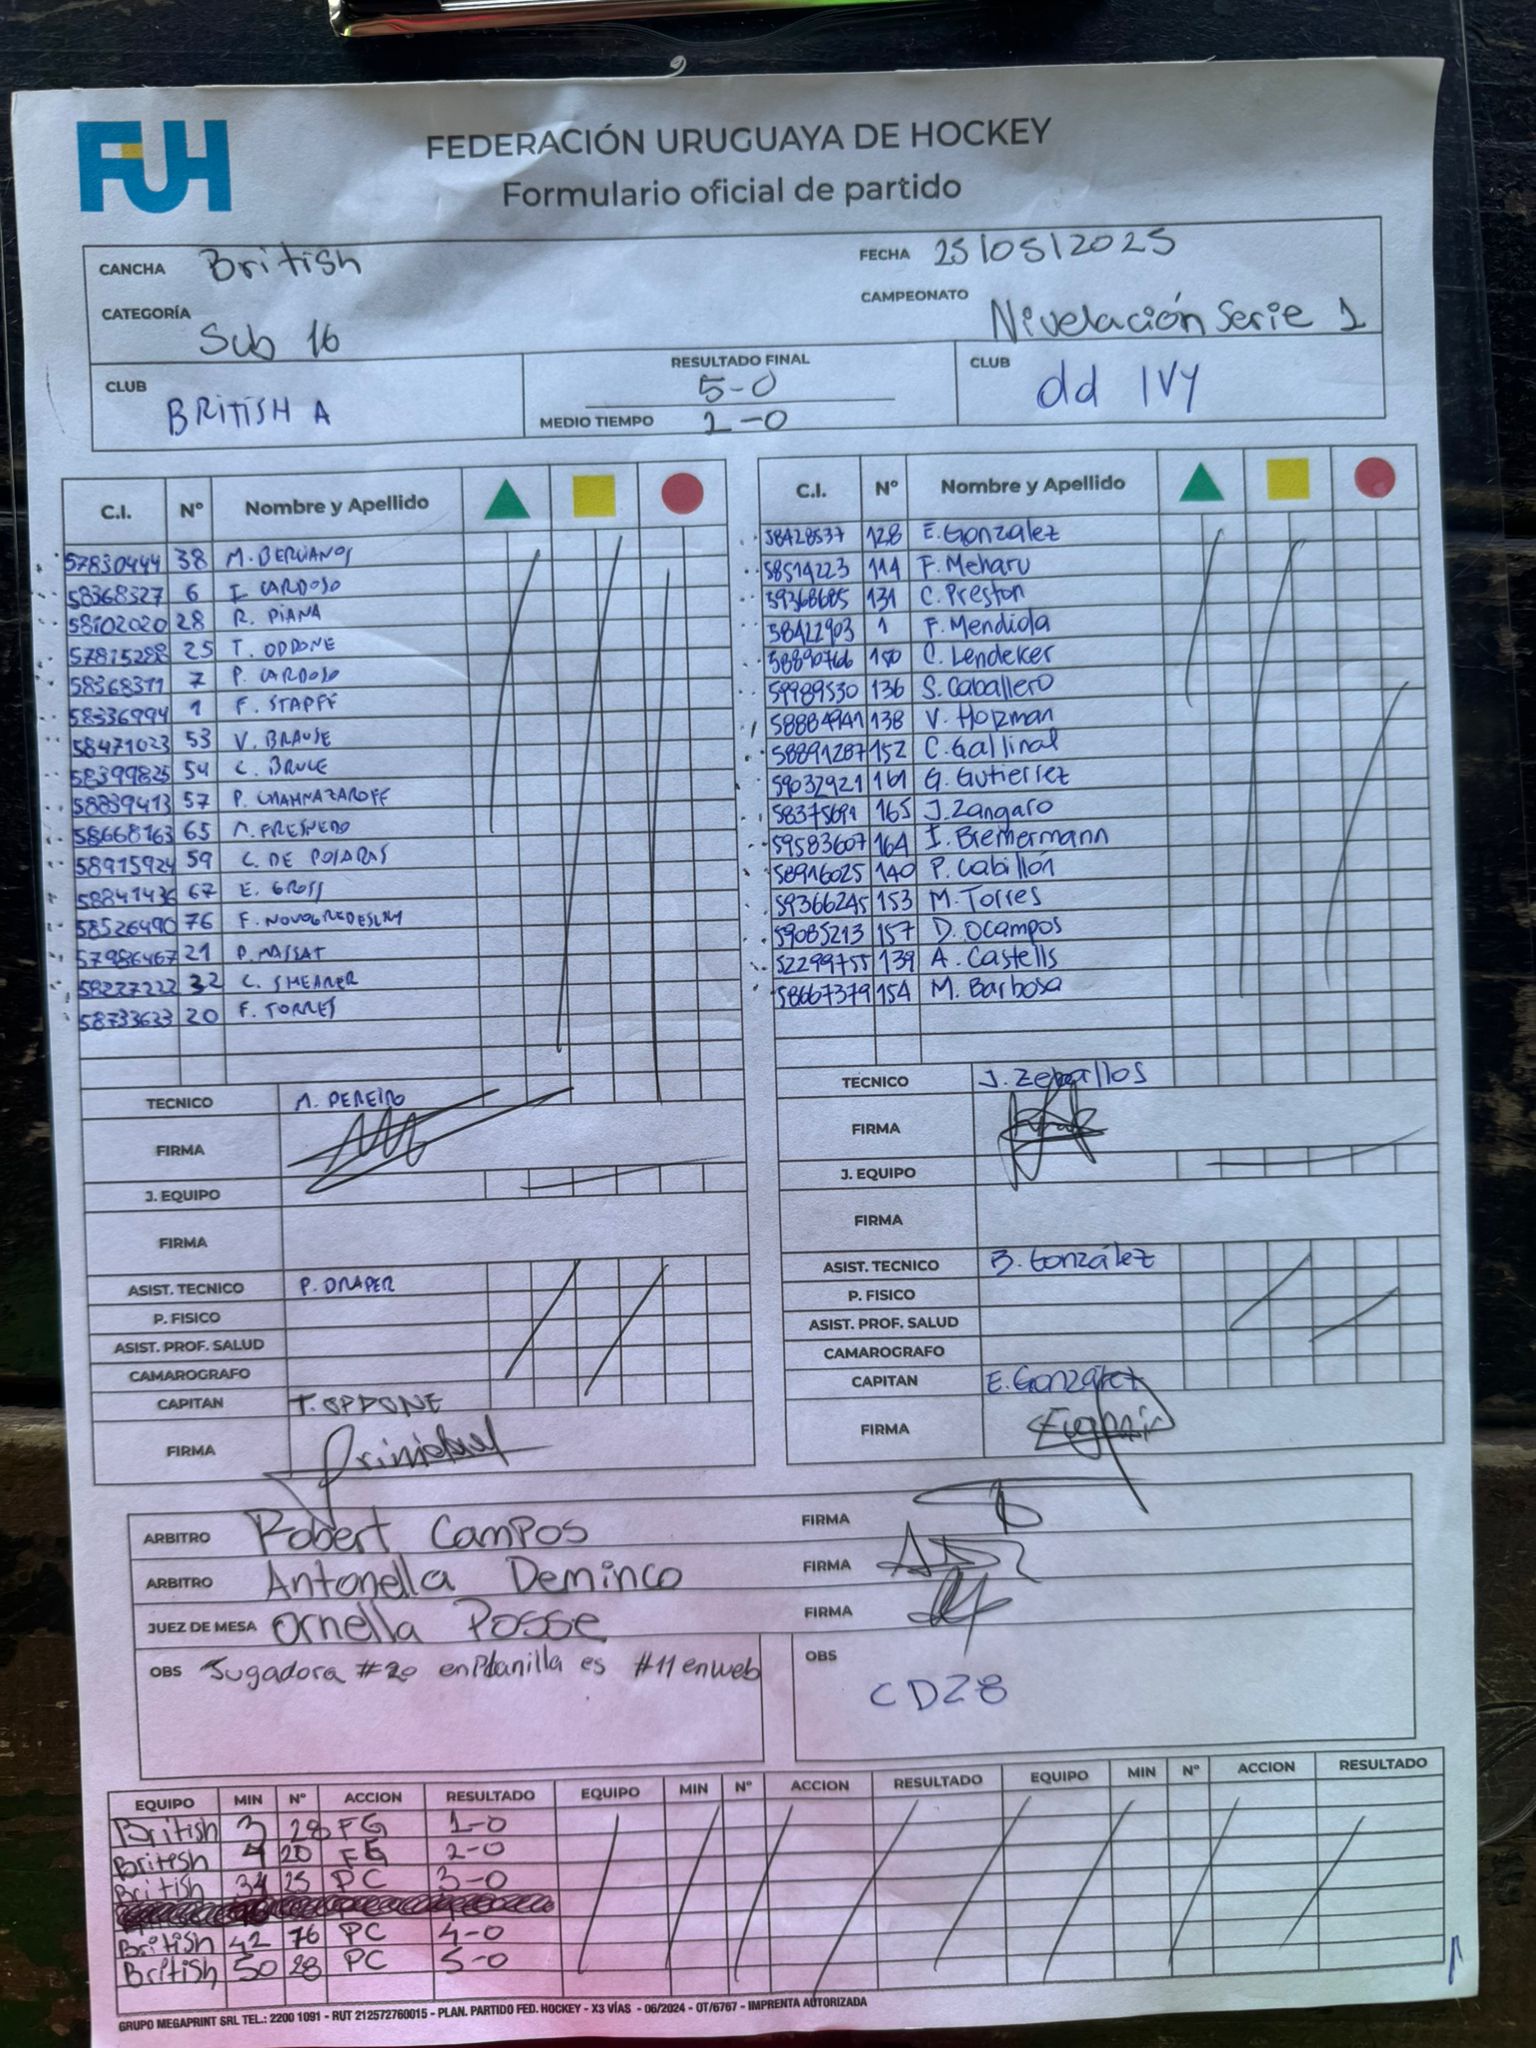 FUH
FEDERACIÓN URUGUAYA DE HOCKEY
Formulario oficial de partido
CANCHA British FECHA 25/05/2025
CATEGORÍA Sub 16 CAMPEONATO Nivelación Serie 1
CLUB BRITISH A RESULTADO FINAL 5-0 CLUB Old IVY
MEDIO TIEMPO 2-0
C.I. Nº Nombre y Apellido
57830444 38 M. BERVANOS
58368327 6 I. CARDOSO
58102020 28 R. PIANA
57815288 25 T. ODDONE
58368311 7 P. CARDOSO
58336994 1 F. STAPFF
58471023 53 V. BRAUSE
58399825 54 C. BRUCE
58839413 57 P. CHAHNAZAROFF
58668163 65 M. FRESNEDO
58915924 59 C. DE POSADAS
58841436 67 E. GROSS
58526490 76 F.
57986467 21 P. MASSAT
58227222 32 C. SHEARER
58733633 20 F. TORRES
TECNICO M. PEREIRO
FIRMA
J. EQUIPO
FIRMA
ASIST. TECNICO P. DRAPER
P. FISICO
ASIST. PROF. SALUD
CAMAROGRAFO
CAPITAN T. ODDONE
FIRMA
C.I. Nº Nombre y Apellido
58428537 128 E. Gonzalez
58514223 114 F. Meharu
59368685 131 C. Preston
58422903 1 F. Mendiola
58890766 150 C. Lendeker
59989530 136 S. Caballero
58884941 138 V. Hozman
58891287 152 C. Gallinal
59032921 161 G. Gutierrez
58375691 165 J. Zangaro
59583607 164 I. Biemermann
58916025 140 P. Cabillón
59366245 153 M. Torres
59085213 157 D. Ocampos
52299755 139 A. Castells
58667379 154 M. Barbosa
TECNICO J. Zeballos
FIRMA
J. EQUIPO
FIRMA
ASIST. TECNICO B. González
P. FISICO
ASIST. PROF. SALUD
CAMAROGRAFO
CAPITAN E. González
FIRMA
ARBITRO Robert Campos FIRMA
ARBITRO Antonella Deminco FIRMA
JUEZ DE MESA Ornella Posse FIRMA
OBS Jugadora #20 en Planilla es #11 en web
OBS CD28
EQUIPO MIN Nº ACCION RESULTADO EQUIPO MIN Nº ACCION RESULTADO EQUIPO MIN Nº ACCION RESULTADO
British 3 28 FG 1-0
British 4 20 FG 2-0
British 34 25 PC 3-0
British 42 76 PC 4-0
British 50 28 PC 5-0
GRUPO MEGAPRINT SRL TEL.: 2200 1091 - RUT 212572760015 - PLAN. PARTIDO FED. HOCKEY - X3 VÍAS - 06/2024 - OT/6767 - IMPRENTA AUTORIZADA